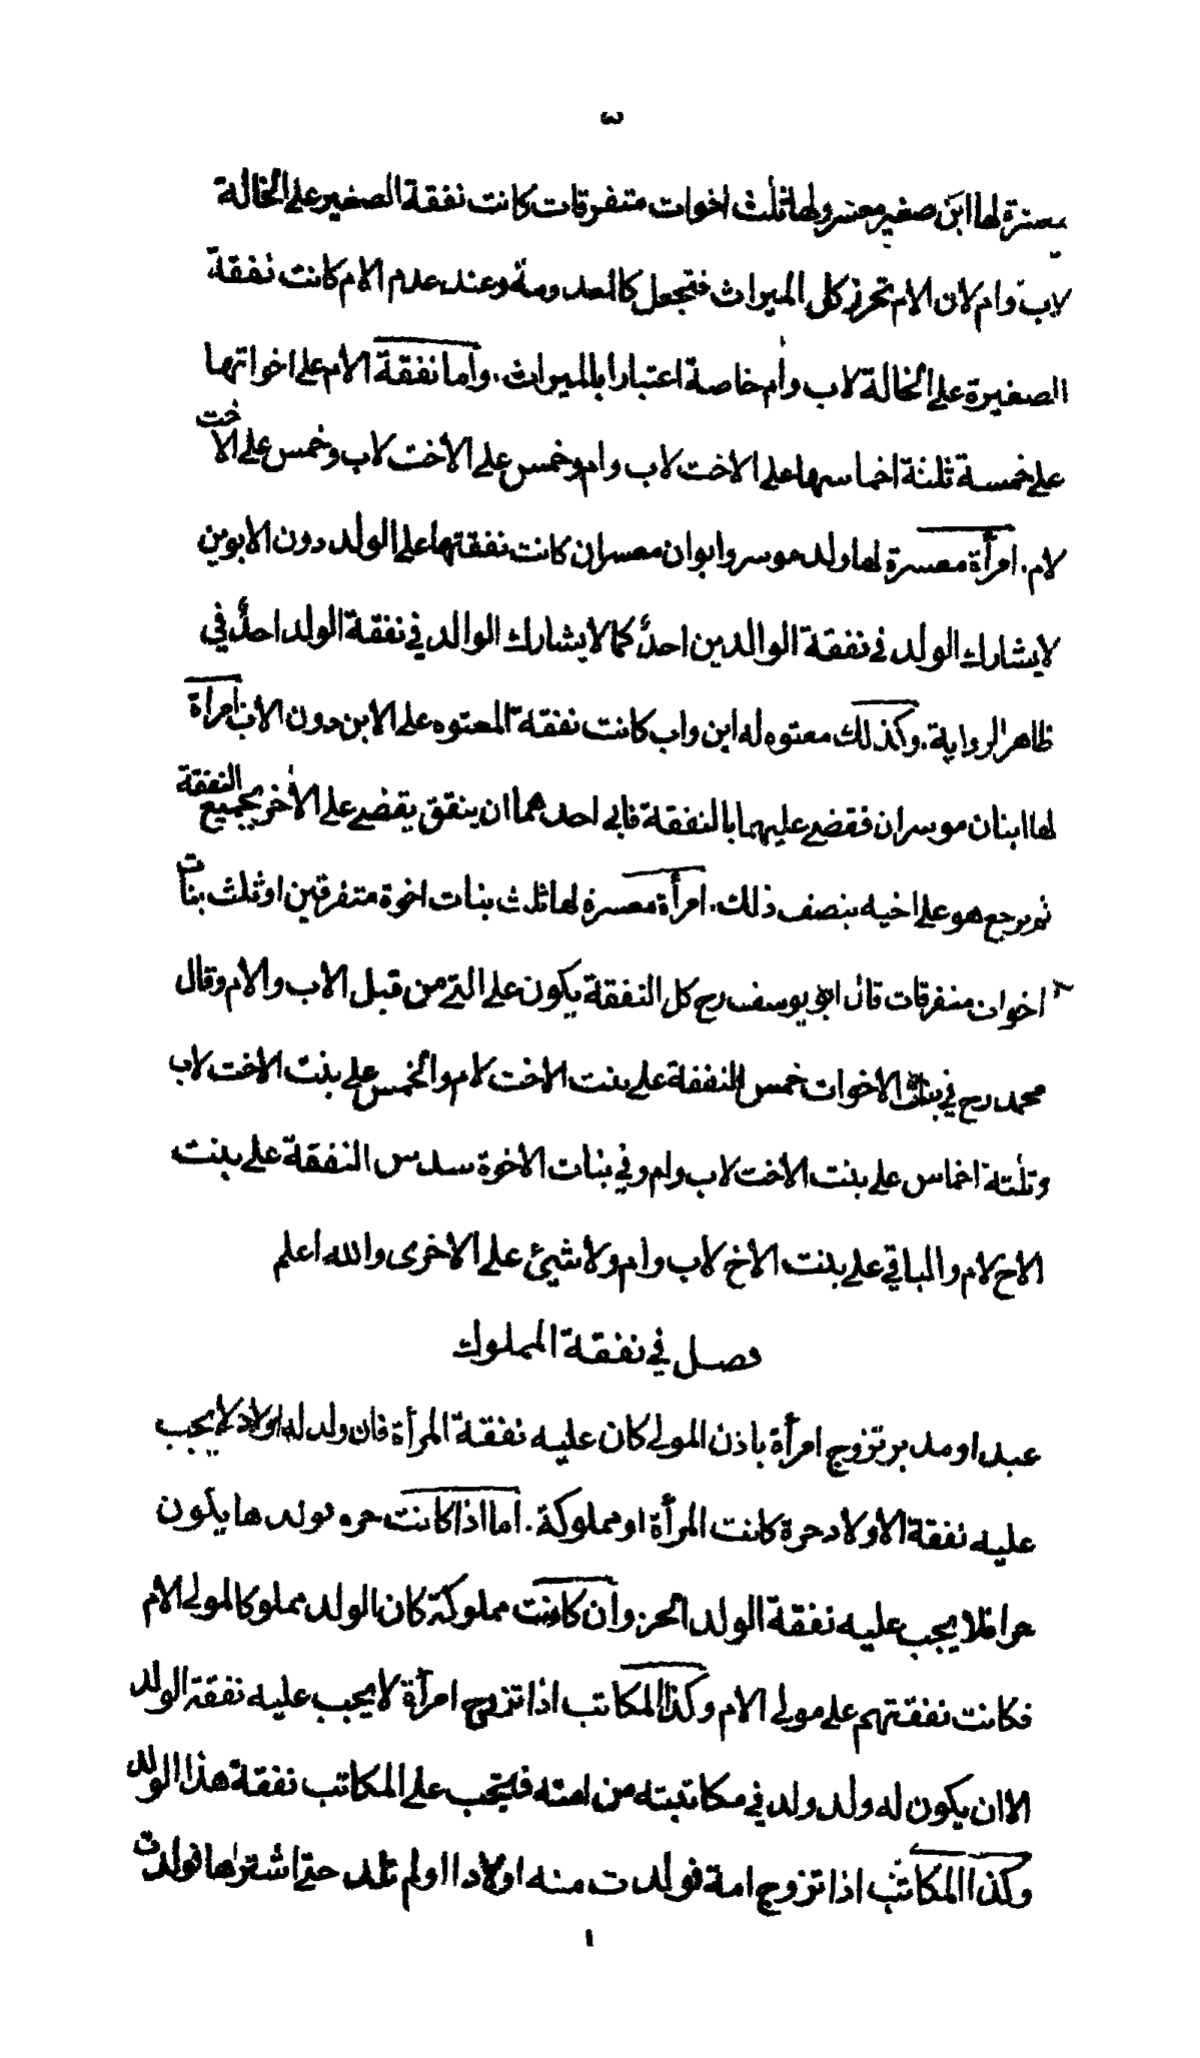 ٣
معسرة لها ابن صغير معسر ولها ثلث اخوات متفرقات كانت نفقة الصغير على الخالة
لاب وام لان الام تحرز كل الميراث فتجعل كالمعدومة وعند عدم الام كانت نفقة
الصغيرة على الخالة لاب وام خاصة اعتبارا بالميراث. واما نفقة الام على اخواتها
على خمسة ثلثة اخماسها على الاخت لاب وام وخمس على الأخت لاب وخمس على الاخت
لام. امرأة معسرة لها ولد موسر وابوان معسران كانت نفقتها على الولد دون الابوين
لا يشارك الولد في نفقة الوالدين احدٌ كما لا يشارك الوالد في نفقة الولد احدٌ في
ظاهر الرواية. وكذلك معتوه له ابن واب كانت نفقة المعتوه على الابن دون الاب امرأة
لها ابنان موسران فقضى عليهما بالنفقة فابى احدهما ان ينفق يقضى على الآخر بجميع النفقة
ثم يرجع هو على اخيه بنصف ذلك. امرأة معسرة لها ثلث بنات اخوة متفرقين او ثلث بنات
اخوات متفرقات قال ابو يوسف رح كل النفقة يكون على التى من قبل الاب والام وقال
محمد رح في بنات الاخوات خمس النفقة على بنت الاخت لام والخمس على بنت الاخت لاب
وثلثة اخماس على بنت الأخت لاب وام وفي بنات الاخوة سدس النفقة على بنت
الاخ لام والباقي على بنت الأخ لاب وام ولا شيئ على الاخرى والله اعلم
فصل في نفقة المملوك
عبد او مدبر تزوج امرأة باذن المولى كان عليه نفقة المرأة فان ولد له اولاد لا يجب
عليه نفقة الاولاد حرة كانت المرأة او مملوكة. اما اذا كانت حرة فولدها يكون
حرا فلا يجب عليه نفقة الولد الحر وان كانت مملوكة كان الولد مملوكا لمولى الام
فكانت نفقتهم على مولى الام وكذا المكاتب اذا تزوج امرأة لا يجب عليه نفقة الولد
الا ان يكون له ولد ولد في مكاتبته من امته فيجب على المكاتب نفقة هذا الولد
وكذا المكاتب اذا تزوج امة فولدت منه اولادا اولم تلد حتى اشتراها فولدت
١